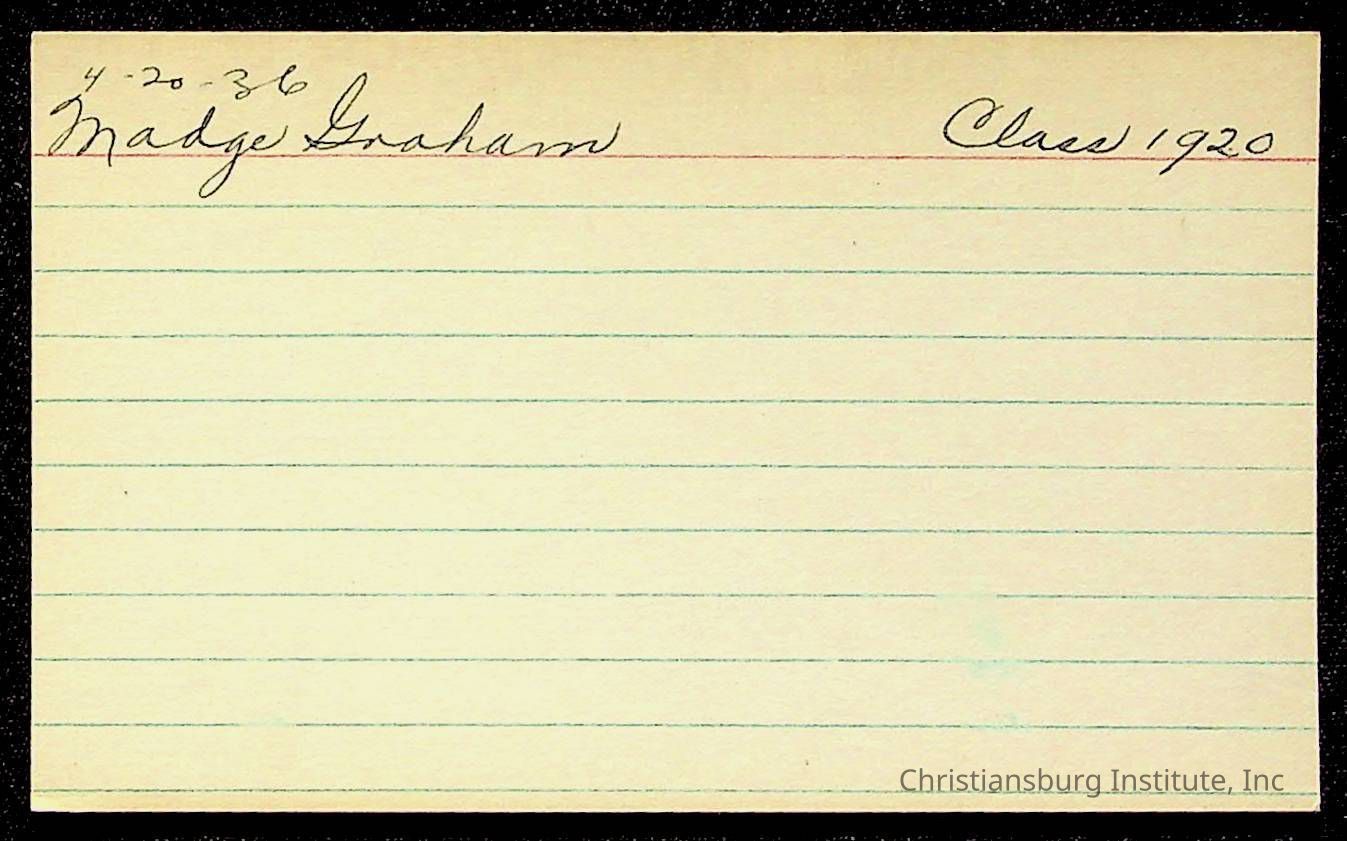 4-20-36
Madge Graham Class 1920
Christiansburg Institute, Inc